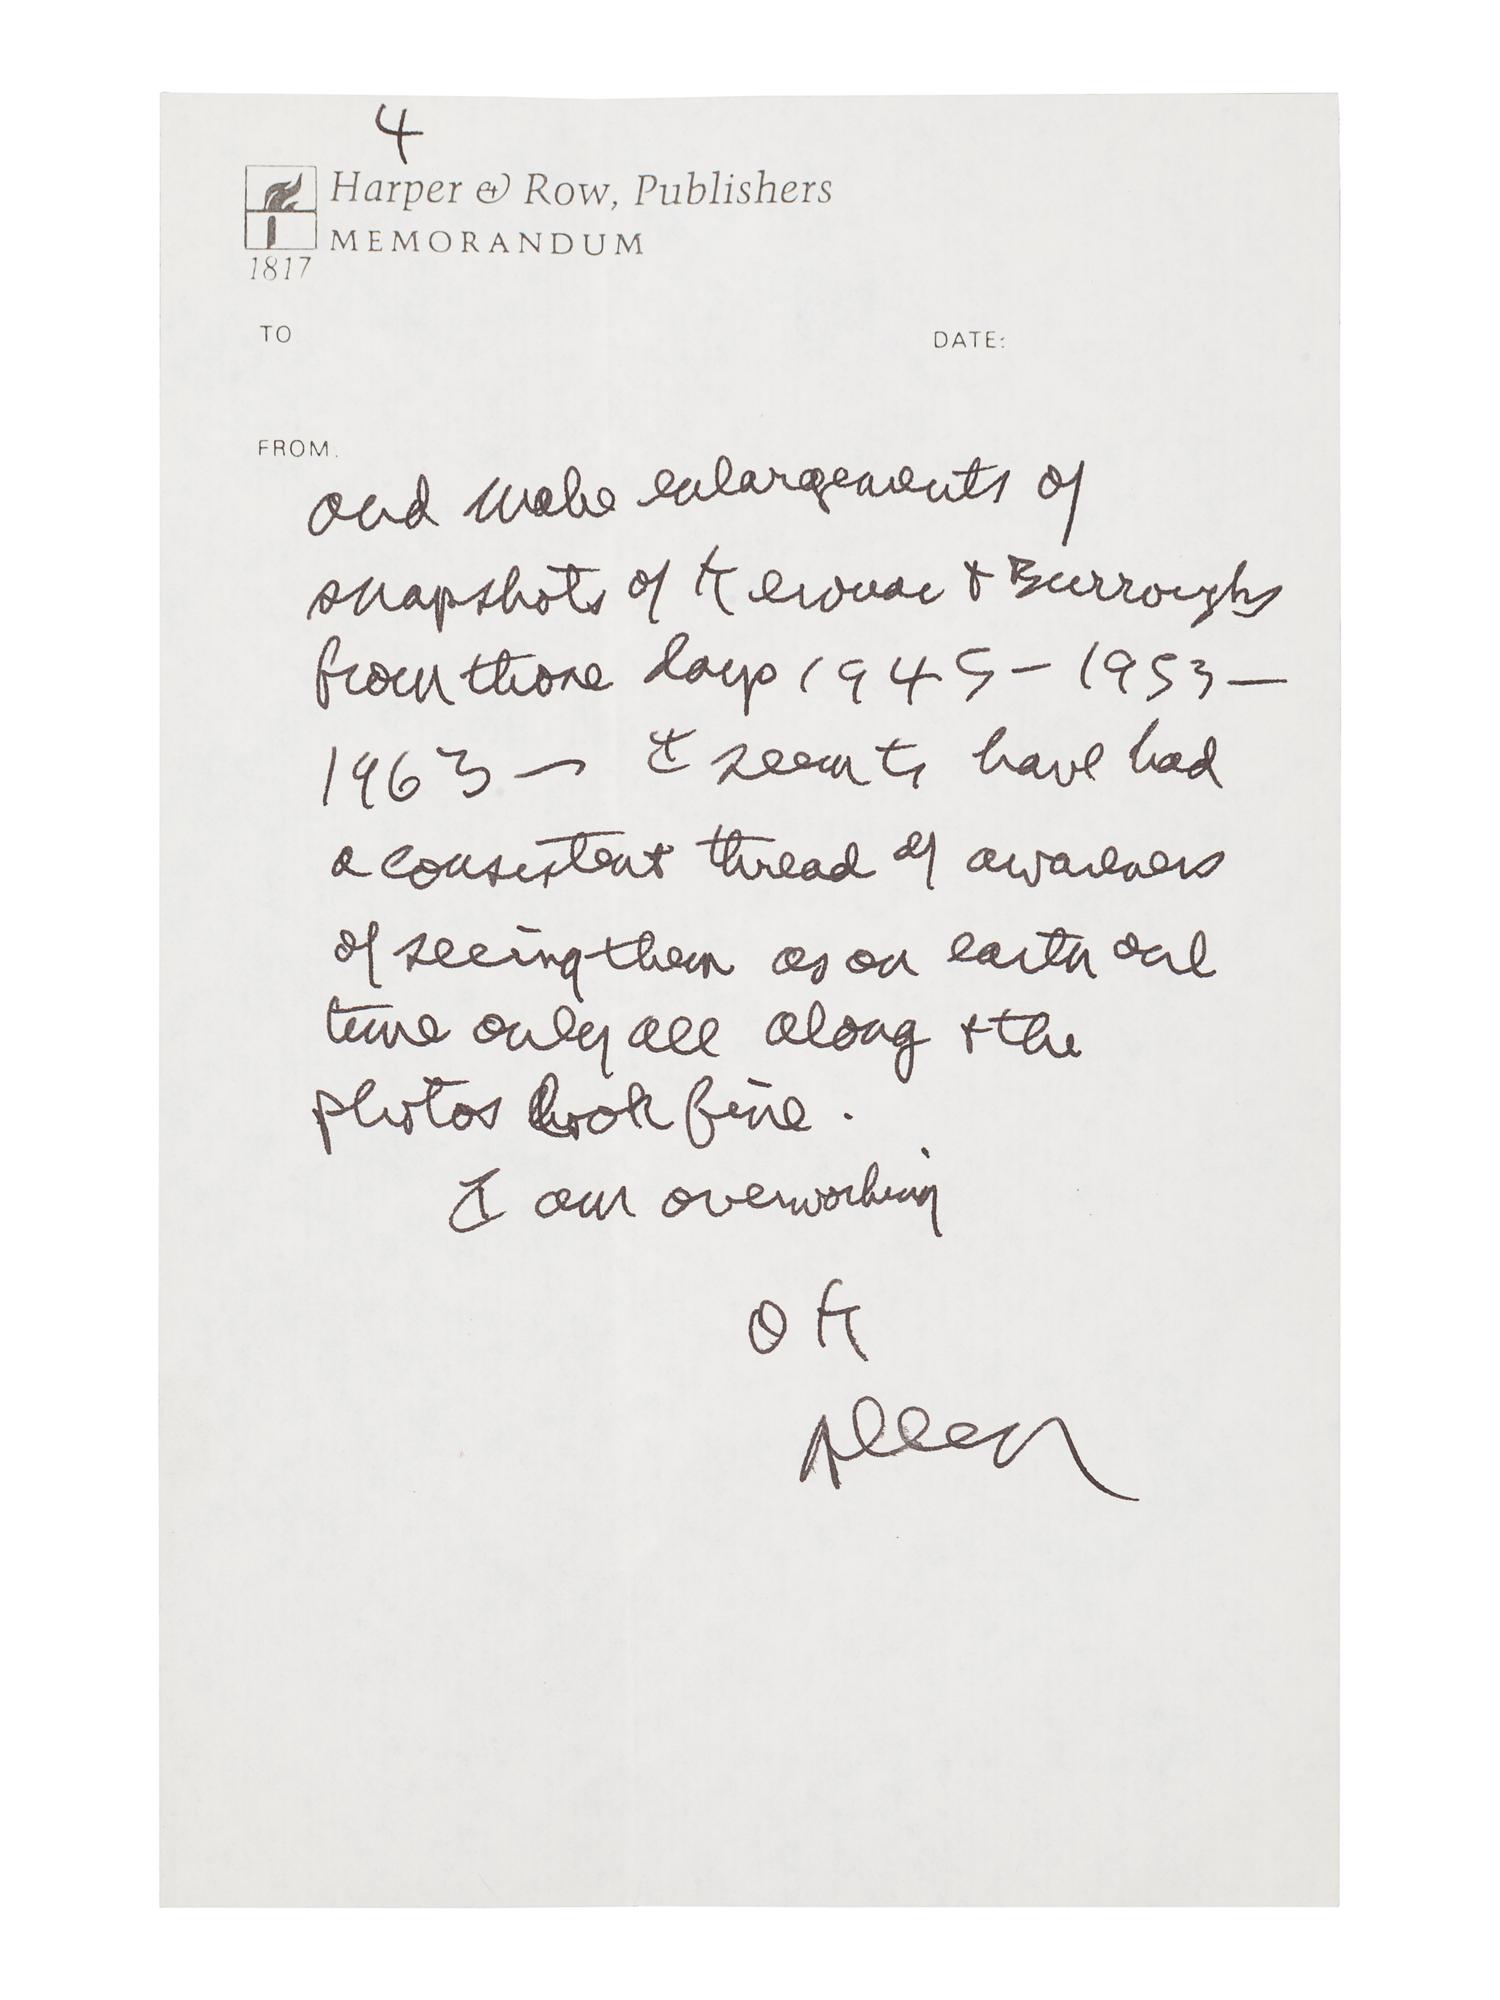 4
Harper & Row, Publishers
MEMORANDUM
1817
TO
DATE:
FROM.
and make enlargements of
snapshots of Kerouac & Burroughs
from those days 1945 – 1953 –
1963 – I seem to have had
a consistent thread of awareness
of seeing them as on earth one
time only all along & the
photos look fine.
I am overworking
OK
Allen